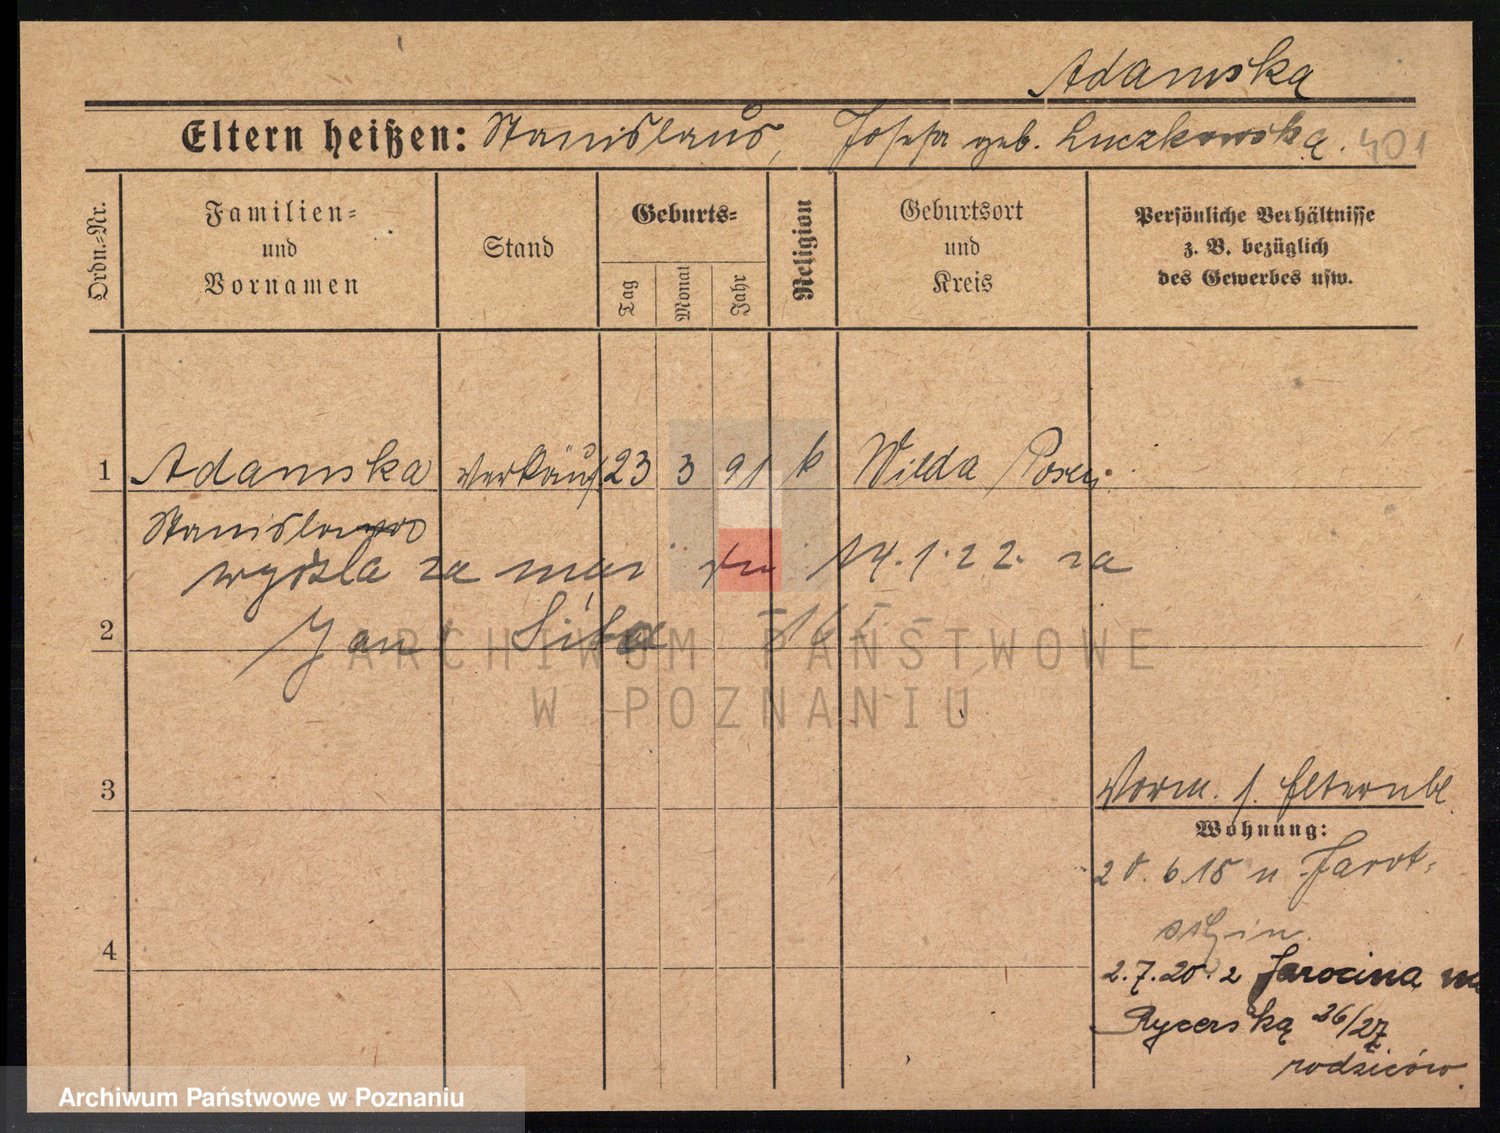 Adamska
Eltern heißen: Stanislaus, Josefa geb. Luczkowska. 401
Ordn.-Nr.
Familien- und Vornamen
Stand
Geburts-
Tag
Monat
Jahr
Religion
Geburtsort und Kreis
Persönliche Verhältnisse
z. B. bezüglich
des Gewerbes usw.
1 Adamska Verkäuf 23 3 91 k Wilda Posen
Stanislawa
wyszla za mąż 14.1.22. za
2 Jan
3 Vorm. s. Elternbl.
Wohnung:
20.6.15 n Jarot-
schin.
4
2.7.20. z Jarocina na
Rycerską 26/27
rodziców.
ARCHIWUM PAŃSTWOWE
W POZNANIU
Archiwum Państwowe w Poznaniu